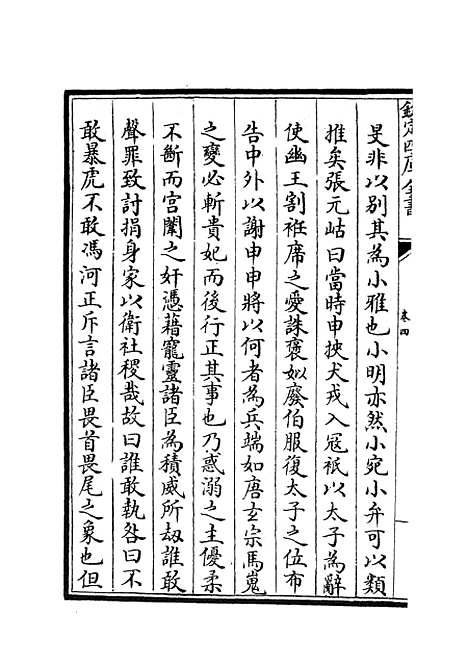 欽定四庫全書
卷四
旻非以别其為小雅也小明亦然小宛小弁可以類
推矣張元岵曰當時申挾犬戎入冦祇以太子為辭
使幽王割袵席之愛誅褒姒廢伯服復太子之位布
告中外以謝申申將以何者為兵端如唐𤣥宗馬嵬
之變必斬貴妃而後行正其事也乃惑溺之主優柔
不斷而宫闈之奸憑藉寵靈諸臣為積威所刼誰敢
聲罪致討捐身家以衛社稷哉故曰誰敢執咎曰不
敢暴虎不敢馮河正斥言諸臣畏首畏尾之象也但